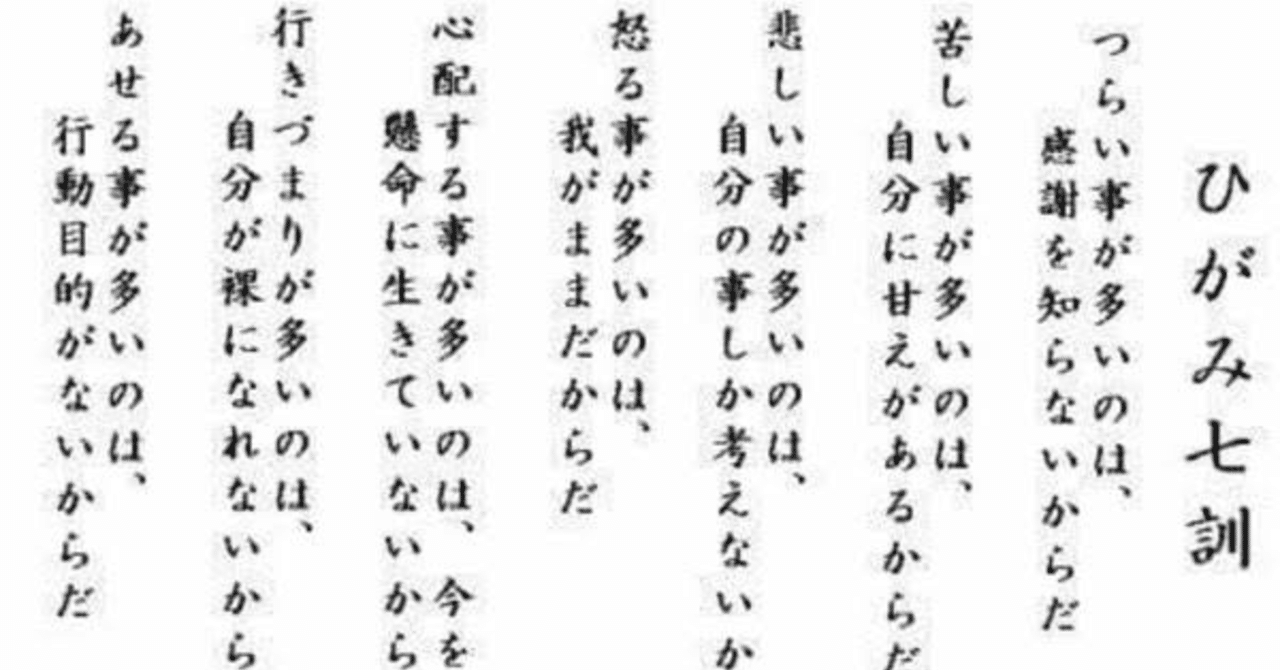 ひがみ七訓
つらい事が多いのは、
感謝を知らないからだ
苦しい事が多いのは、
自分に甘えがあるからだ
悲しい事が多いのは、
自分の事しか考えないか
怒る事が多いのは、
我がままだからだ
心配する事が多いのは、今を
懸命に生きていないから
行きづまりが多いのは、
自分が裸になれないから
あせる事が多いのは、
行動目的がないからだ